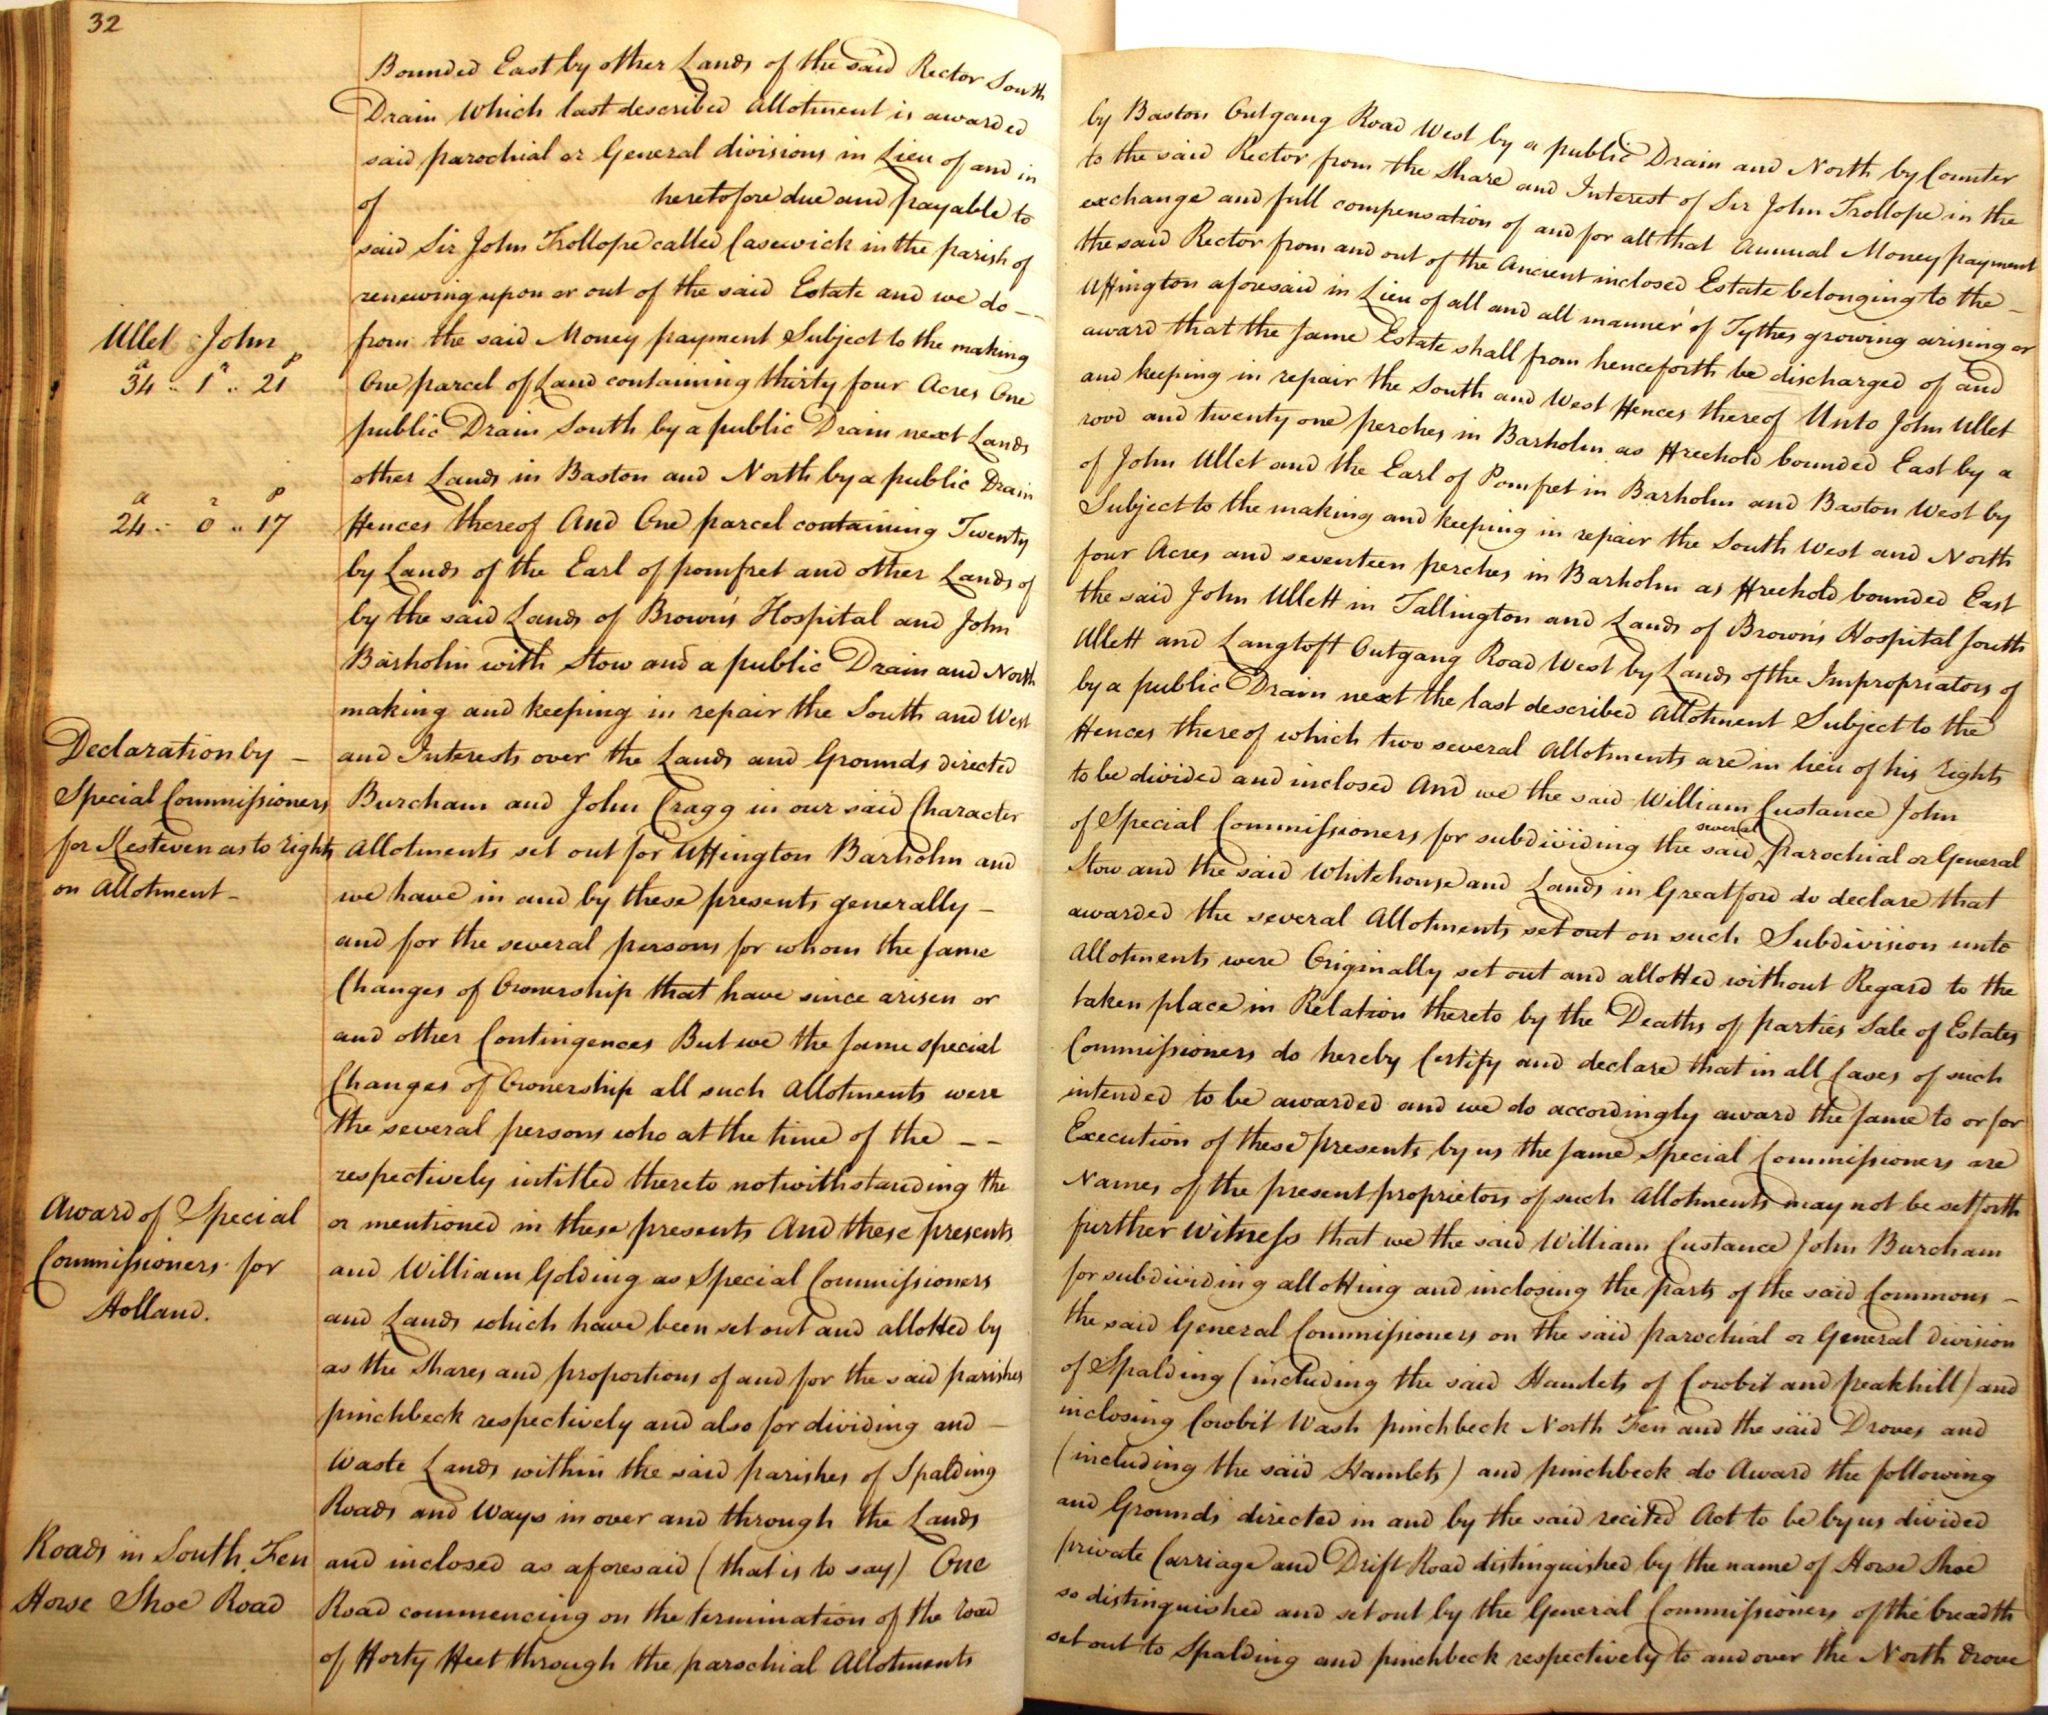 32
Bounded East by other Lands of the said Rector South by Baston Outgang Road West by a public Drain and North by Counter
Drain Which last described allotment is awarded to the said Rector from the Share and Interest of Sir John Trollope in the
said parochial or General divisions in Lieu of and in exchange and full compensation of and for all that Annual Money payment
of heretofore due and payable to the said Rector from and out of the Ancient inclosed Estate belonging to the –
said Sir John Trollope called Casewick in the parish of Uffington aforesaid in Lieu of all and all manner of Tythes growing arising or
renewing upon or out of the said Estate and we do – – award that the same Estate shall from henceforth be discharged of and
Ullet John
from the said Money payment Subject to the making and keeping in repair the South and West Fences thereof Unto John Ullet
a r p
34 .. 1 .. 21
One parcel of Land containing thirty four Acres One rood and twenty one perches in Barholm as Freehold bounded East by a
public Drain South by a public Drain next Lands of John Ullet and the Earl of Pomfret in Barholm and Baston West by
other Lands in Baston and North by a public Drain Subject to the making and keeping in repair the South West and North
a r p
24 .. 0 .. 17
Fences thereof And One parcel containing Twenty four Acres and seventeen perches in Barholm as Freehold bounded East
by Lands of the Earl of pomfret and other Lands of the said John Ullett in Tallington and Lands of Brown's Hospital South
by the said Lands of Brown's Hospital and John Ullett and Langtoft Outgang Road West by Lands of the Impropriators of
Barholm with Stow and a public Drain and North by a public Drain next the last described Allotment Subject to the
making and keeping in repair the South and West Fences thereof which two several Allotments are in lieu of his rights
Declaration by –
Special Commissioners
for Kesteven as to rights
on Allotment –
and Interests over the Lands and Grounds directed to be divided and inclosed And we the said William Custance John
Burcham and John Cragg in our said Character of Special Commissioners for subdividing the said several parochial or General
Allotments set out for Uffington Barholm and Stow and the said Whitehouse and Lands in Greatford do declare that
we have in and by these presents generally – awarded the several Allotments set out on such Subdivision unto
and for the several persons for whom the same Allotments were Originally set out and allotted without Regard to the
Changes of Ownership that have since arisen or taken place in Relation thereto by the Deaths of parties Sale of Estates
and other Contingences But we the same special Commissioners do hereby Certify and declare that in all Cases of such
Changes of Ownership all such Allotments were intended to be awarded and we do accordingly award the same to or for
the several persons who at the time of the – – Execution of these presents by us the same Special Commissioners are
respectively intitled thereto notwithstanding the Names of the present proprietors of such Allotments may not be set forth
Award of Special
Commissioners for
Holland.
or mentioned in these presents And these presents further Witness that we the said William Custance John Burcham
and William Golding as Special Commissioners for subdividing allotting and inclosing the parts of the said Commons –
and Lands which have been set out and allotted by the said General Commissioners on the said parochial or General division
as the Shares and proportions of and for the said parishes of Spalding (including the said Hamlets of Cowbit and peakhill) and
pinchbeck respectively and also for dividing and – inclosing Cowbit Wash pinchbeck North Fen and the said Droves and
Waste Lands within the said parishes of Spalding (including the said Hamlets) and pinchbeck do Award the following
Roads and Ways in over and through the Lands and Grounds directed in and by the said recited Act to be by us divided
Roads in South Fen
Horse Shoe Road
and inclosed as aforesaid (that is to say) One private Carriage and Drift Road distinguished by the name of Horse Shoe
Road commencing on the termination of the road so distinguished and set out by the General Commissioners of the breadth
of Forty Feet through the parochial Allotments set out to Spalding and pinchbeck respectively to and over the North drove